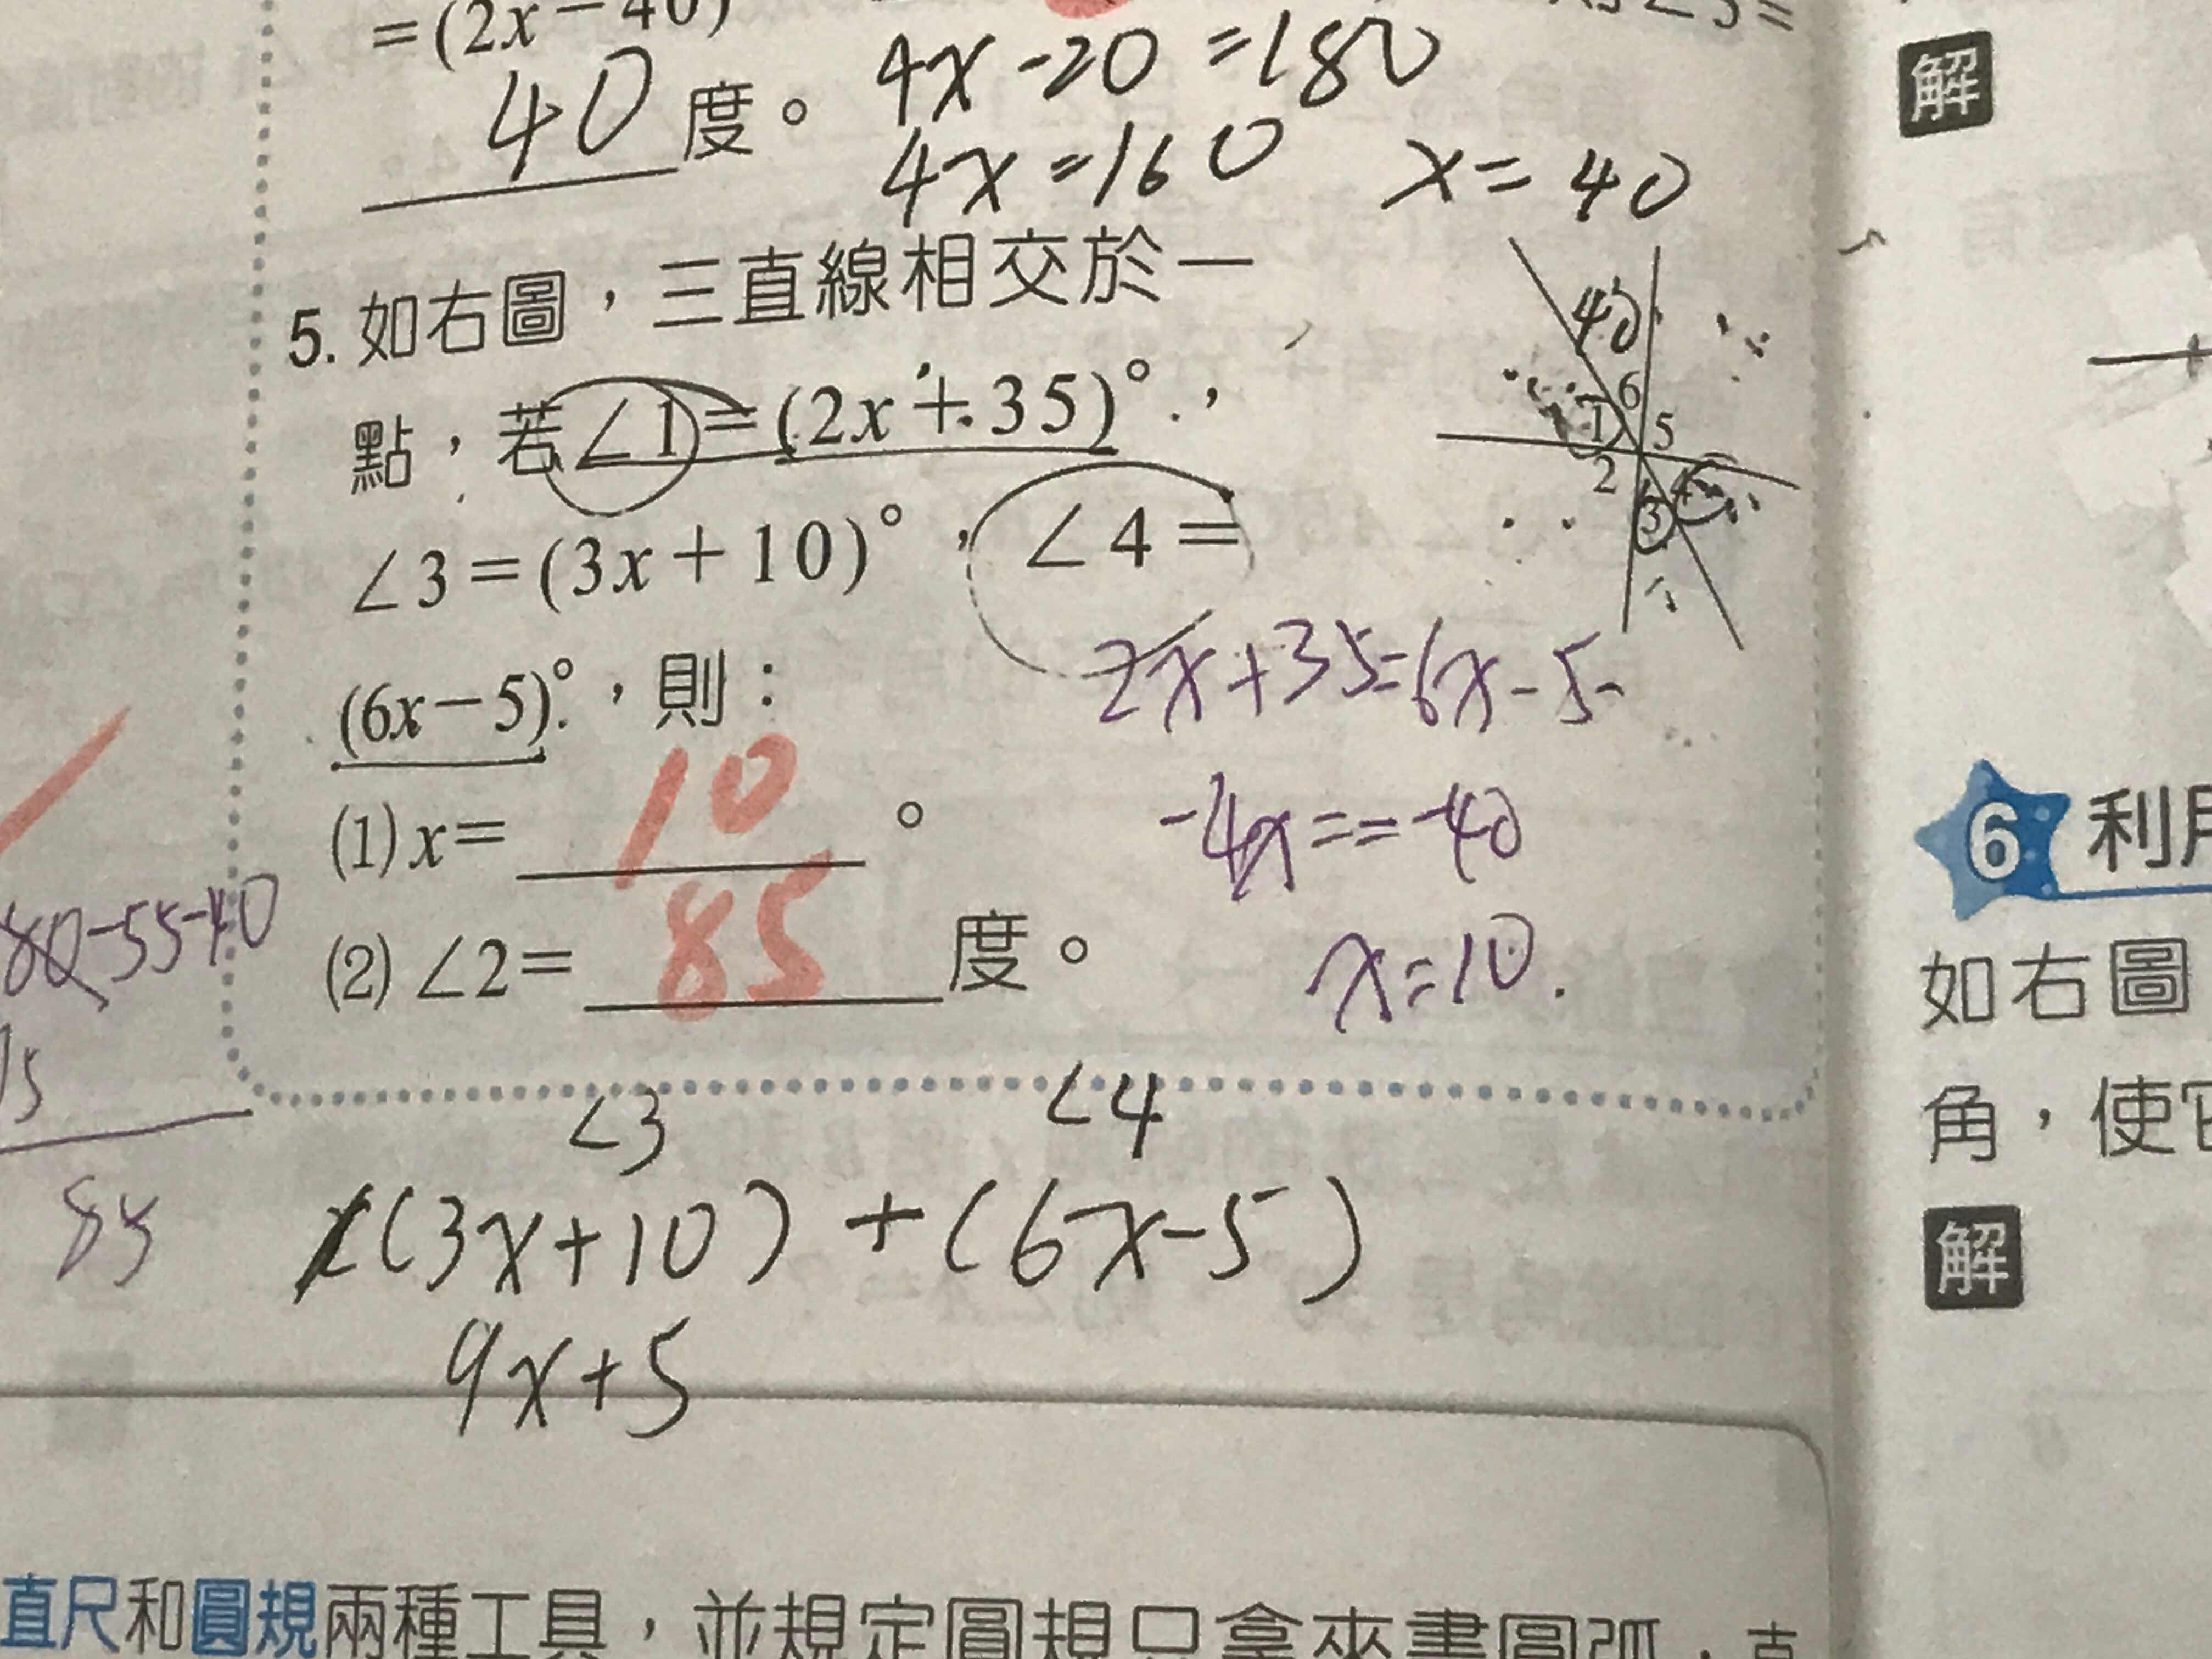 =(2x-40)
40 度。
4x-20=180
4x=160 x=40
5. 如右圖，三直線相交於一
點，若∠1=(2x+35)°，
∠3=(3x+10)°，∠4=
(6x-5)°，則：
40
6
1 5
2 4
3
2x+35=6x-5
-4x==-40
x=10.
(1) x= 10 。
(2) ∠2= 85 度。
80-55-40
85
∠3 ∠4
(3x+10)+(6x-5)
9x+5
解
6 利用
如右圖
角，使它
解
直尺和圓規兩種工具，並規定圓規只拿來畫圓弧，直